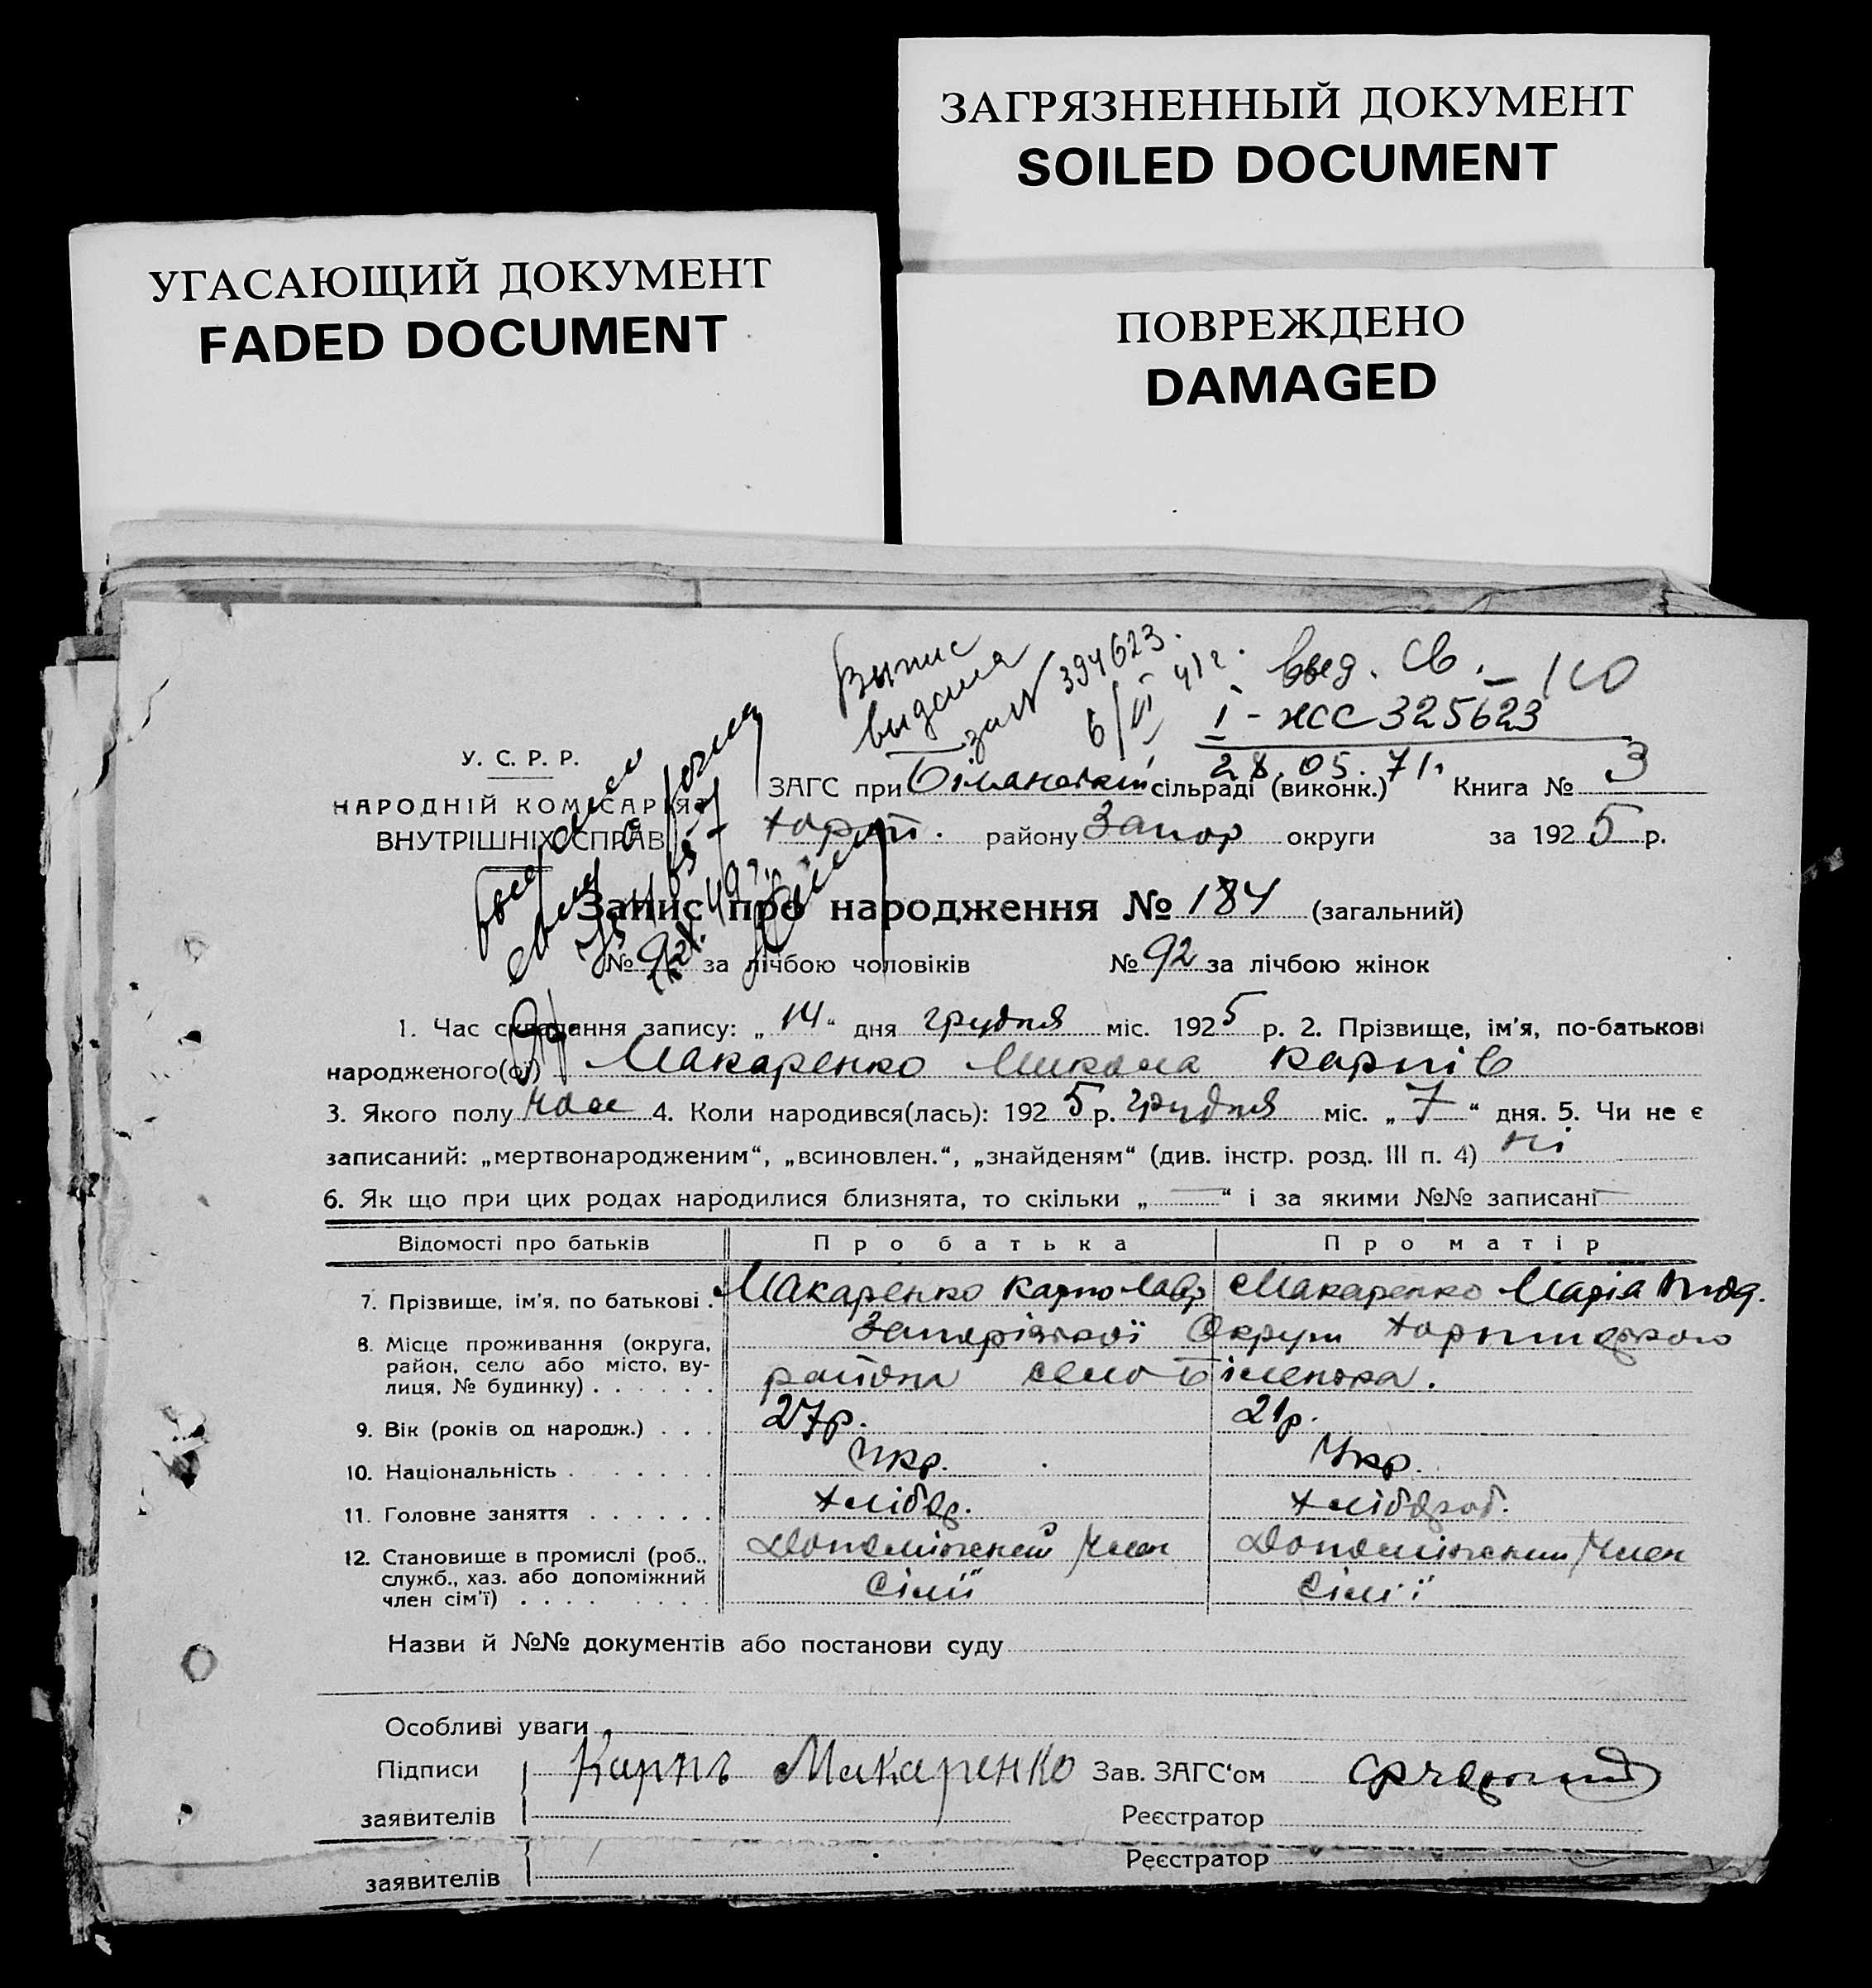 ЗАГРЯЗНЕННЫЙ ДОКУМЕНТ
SOILED DOCUMENT
УГАСАЮЩИЙ ДОКУМЕНТ
FADED DOCUMENT
ПОВРЕЖДЕНО
DAMAGED
Выпис
выдана
394623.
6/VI 41г.
выд. св.
I-ЖС 325623
28.05.71г
У. С. Р. Р.
НАРОДНІЙ КОМІСАРІЯТ
ВНУТРІШНІХ СПРАВ
ЗАГС при сільраді (виконк.) Книга № 3
Хорт. району Запор округи за 1925 р.
Запис про народження № 184 (загальний)
№ 92 за лічбою чоловіків № 92 за лічбою жінок
1. Час складання запису: „14“ дня грудня міс. 1925 р. 2. Прізвище, ім'я, по-батькові
народженого(ої) Макаренко Микола Карпів
3. Якого полу чол 4. Коли народився(лась): 1925 р. грудня міс. „7“ дня. 5. Чи не є
записаний: „мертвонародженим“, „всиновлен.“, „знайденям“ (див. інстр. розд. III п. 4) ні
6. Як що при цих родах народилися близнята, то скільки „—“ і за якими №№ записані —
Відомості про батьків Про батька Про матір
7. Прізвище, ім'я, по батькові . Макаренко Карпо Лавр Макаренко Марія
8. Місце проживання (округа, Запорізької Округи Хортицького
район, село або місто, ву- району село Біленька.
лиця, № будинку) . . . . . .
9. Вік (років од народж.) . . . 27р. 21р.
10. Національність . . . . . . . Укр. Укр.
11. Головне заняття . . . . . . Хлібор. Хлібороб.
12. Становище в промислі (роб., Допоміжний член Допоміжний член
служб., хаз. або допоміжний сімії сім'ї
член сім'ї) . . . . . . . .
Назви й №№ документів або постанови суду
Особливі уваги
Підписи Карпъ Макаренко Зав. ЗАГС'ом
заявителів Реєстратор
заявителів Реєстратор